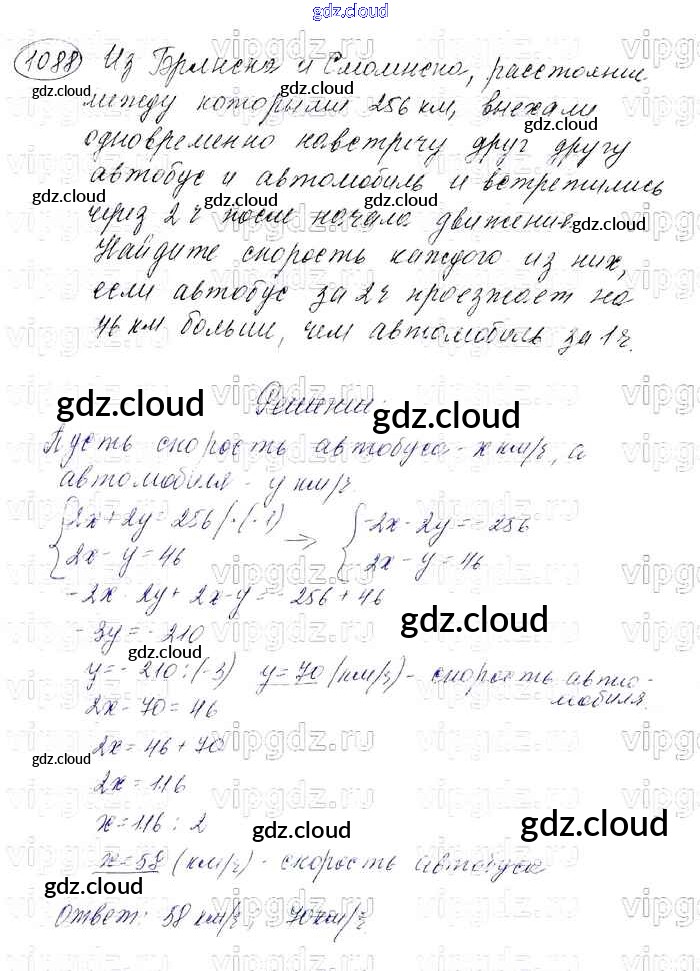 gdz.cloud
1088 Из Брянска и Смоленска, расстояние
между которыми 256 км, выехали
одновременно навстречу друг другу
автобус и автомобиль и встретились
через 2 ч после начала движения.
Найдите скорость каждого из них,
если автобус за 2ч проезжает на
46 км больше, чем автомобиль за 1ч.
Решение:
gdz.cloud gdz.cloud
Пусть скорость автобуса - х км/ч, а
автомобиля - у км/ч.
2х + 2у = 256 | · (-1) → -2х - 2у = -256
2х - у = 46 2х - у = 46
-2х - 2у + 2х - у = -256 + 46
gdz.cloud
-3у = -210
gdz.cloud
у = -210 : (-3) у = 70 (км/ч) - скорость автомо-
мобиля.
2х - 70 = 46
2х = 46 + 70
gdz.cloud
2х = 116
х = 116 : 2
gdz.cloud gdz.cloud
х = 58 (км/ч) - скорость автобуса
gdz.cloud gdz.cloud
Ответ: 58 км/ч, 70 км/ч